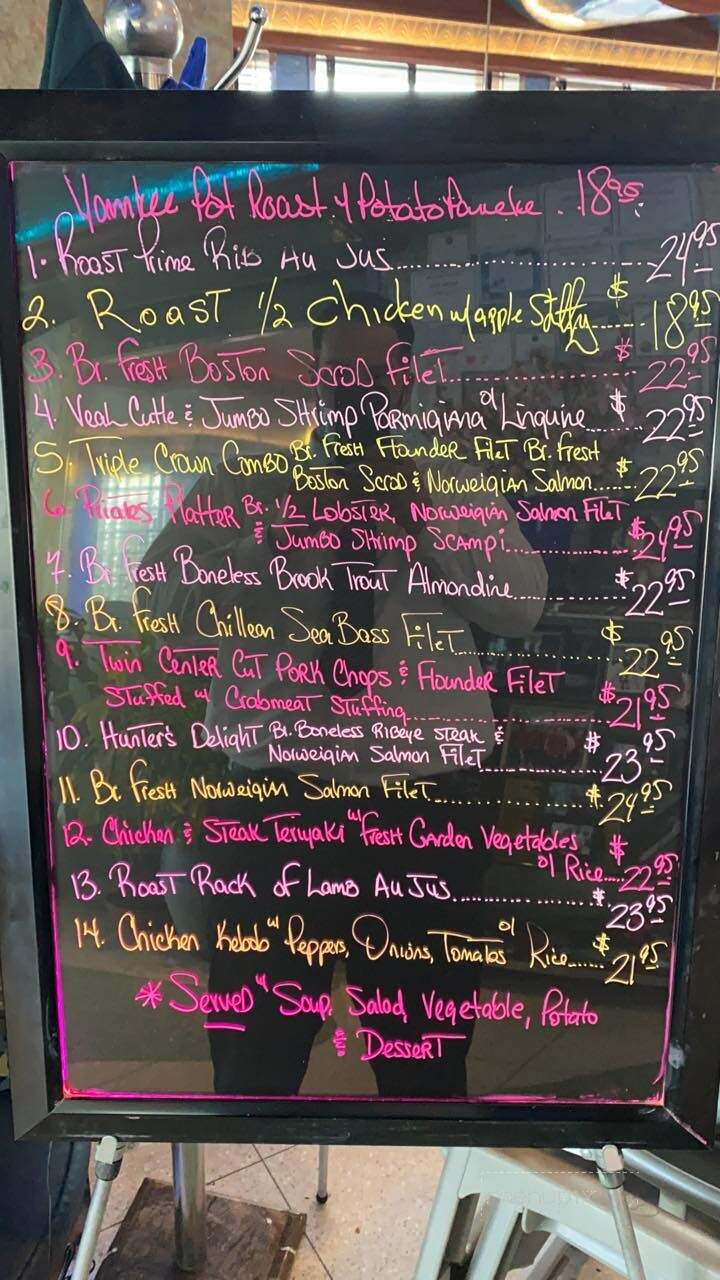 Yankee Pot Roast & Potato Pancake . 18 95
1. Roast Prime Rib Au Jus.......... 24 95
2. Roast 1/2 Chicken w/ apple Stuffing..... $ 18 95
3. Br. Fresh Boston Scrod Filet.......... $ 22 95
4. Veal Cutle & Jumbo Shrimp Parmigiana o/ Linguine... $ 22 95
5. Triple Crown Combo Br. Fresh Flounder Filet Br. Fresh
Boston Scrod & Norweigian Salmon...... $ 22 95
6. Pirates Platter Br. 1/2 Lobster, Norweigian Salmon Filet
& Jumbo Shrimp Scampi.......... $ 24 95
7. Br. Fresh Boneless Brook Trout Almondine.......... $ 22 95
8. Br. Fresh Chillean Sea Bass Filet.......... $ 22 95
9. Twin Center Cut Pork Chops & Flounder Filet
Stuffed w/ Crabmeat Stuffing.......... $ 21 95
10. Hunter's Delight Br. Boneless Ribeye Steak &
Norweigian Salmon Filet.......... $ 23 95
11. Br. Fresh Norweigian Salmon Filet.......... $ 24 95
12. Chicken & Steak Teriyaki w/ Fresh Garden Vegetables
o/ Rice... $ 22 95
13. Roast Rack of Lamb Au Jus.......... $ 23 95
14. Chicken Kebab w/ Peppers, Onions, Tomatos o/ Rice...... $ 21 95
* Served w/ Soup, Salad, Vegetable, Potato
& Dessert